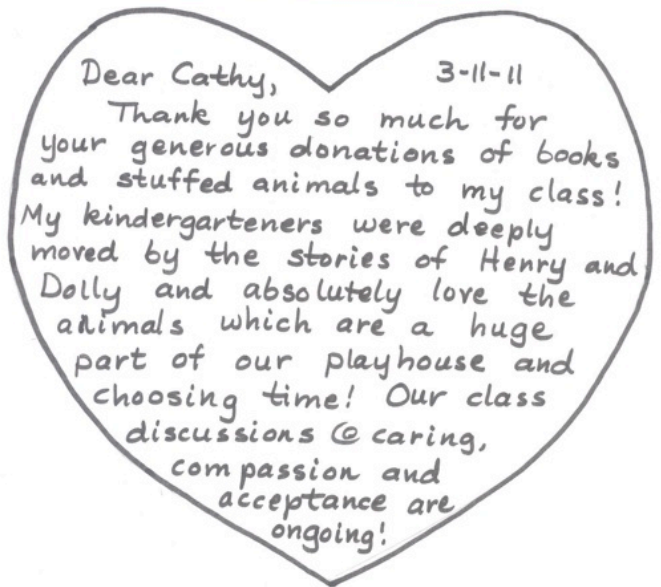 Dear Cathy, 3-11-11
Thank you so much for
your generous donations of books
and stuffed animals to my class!
My kindergarteners were deeply
moved by the stories of Henry and
Dolly and absolutely love the
animals which are a huge
part of our playhouse and
choosing time! Our class
discussions @ caring,
compassion and
acceptance are
ongoing!